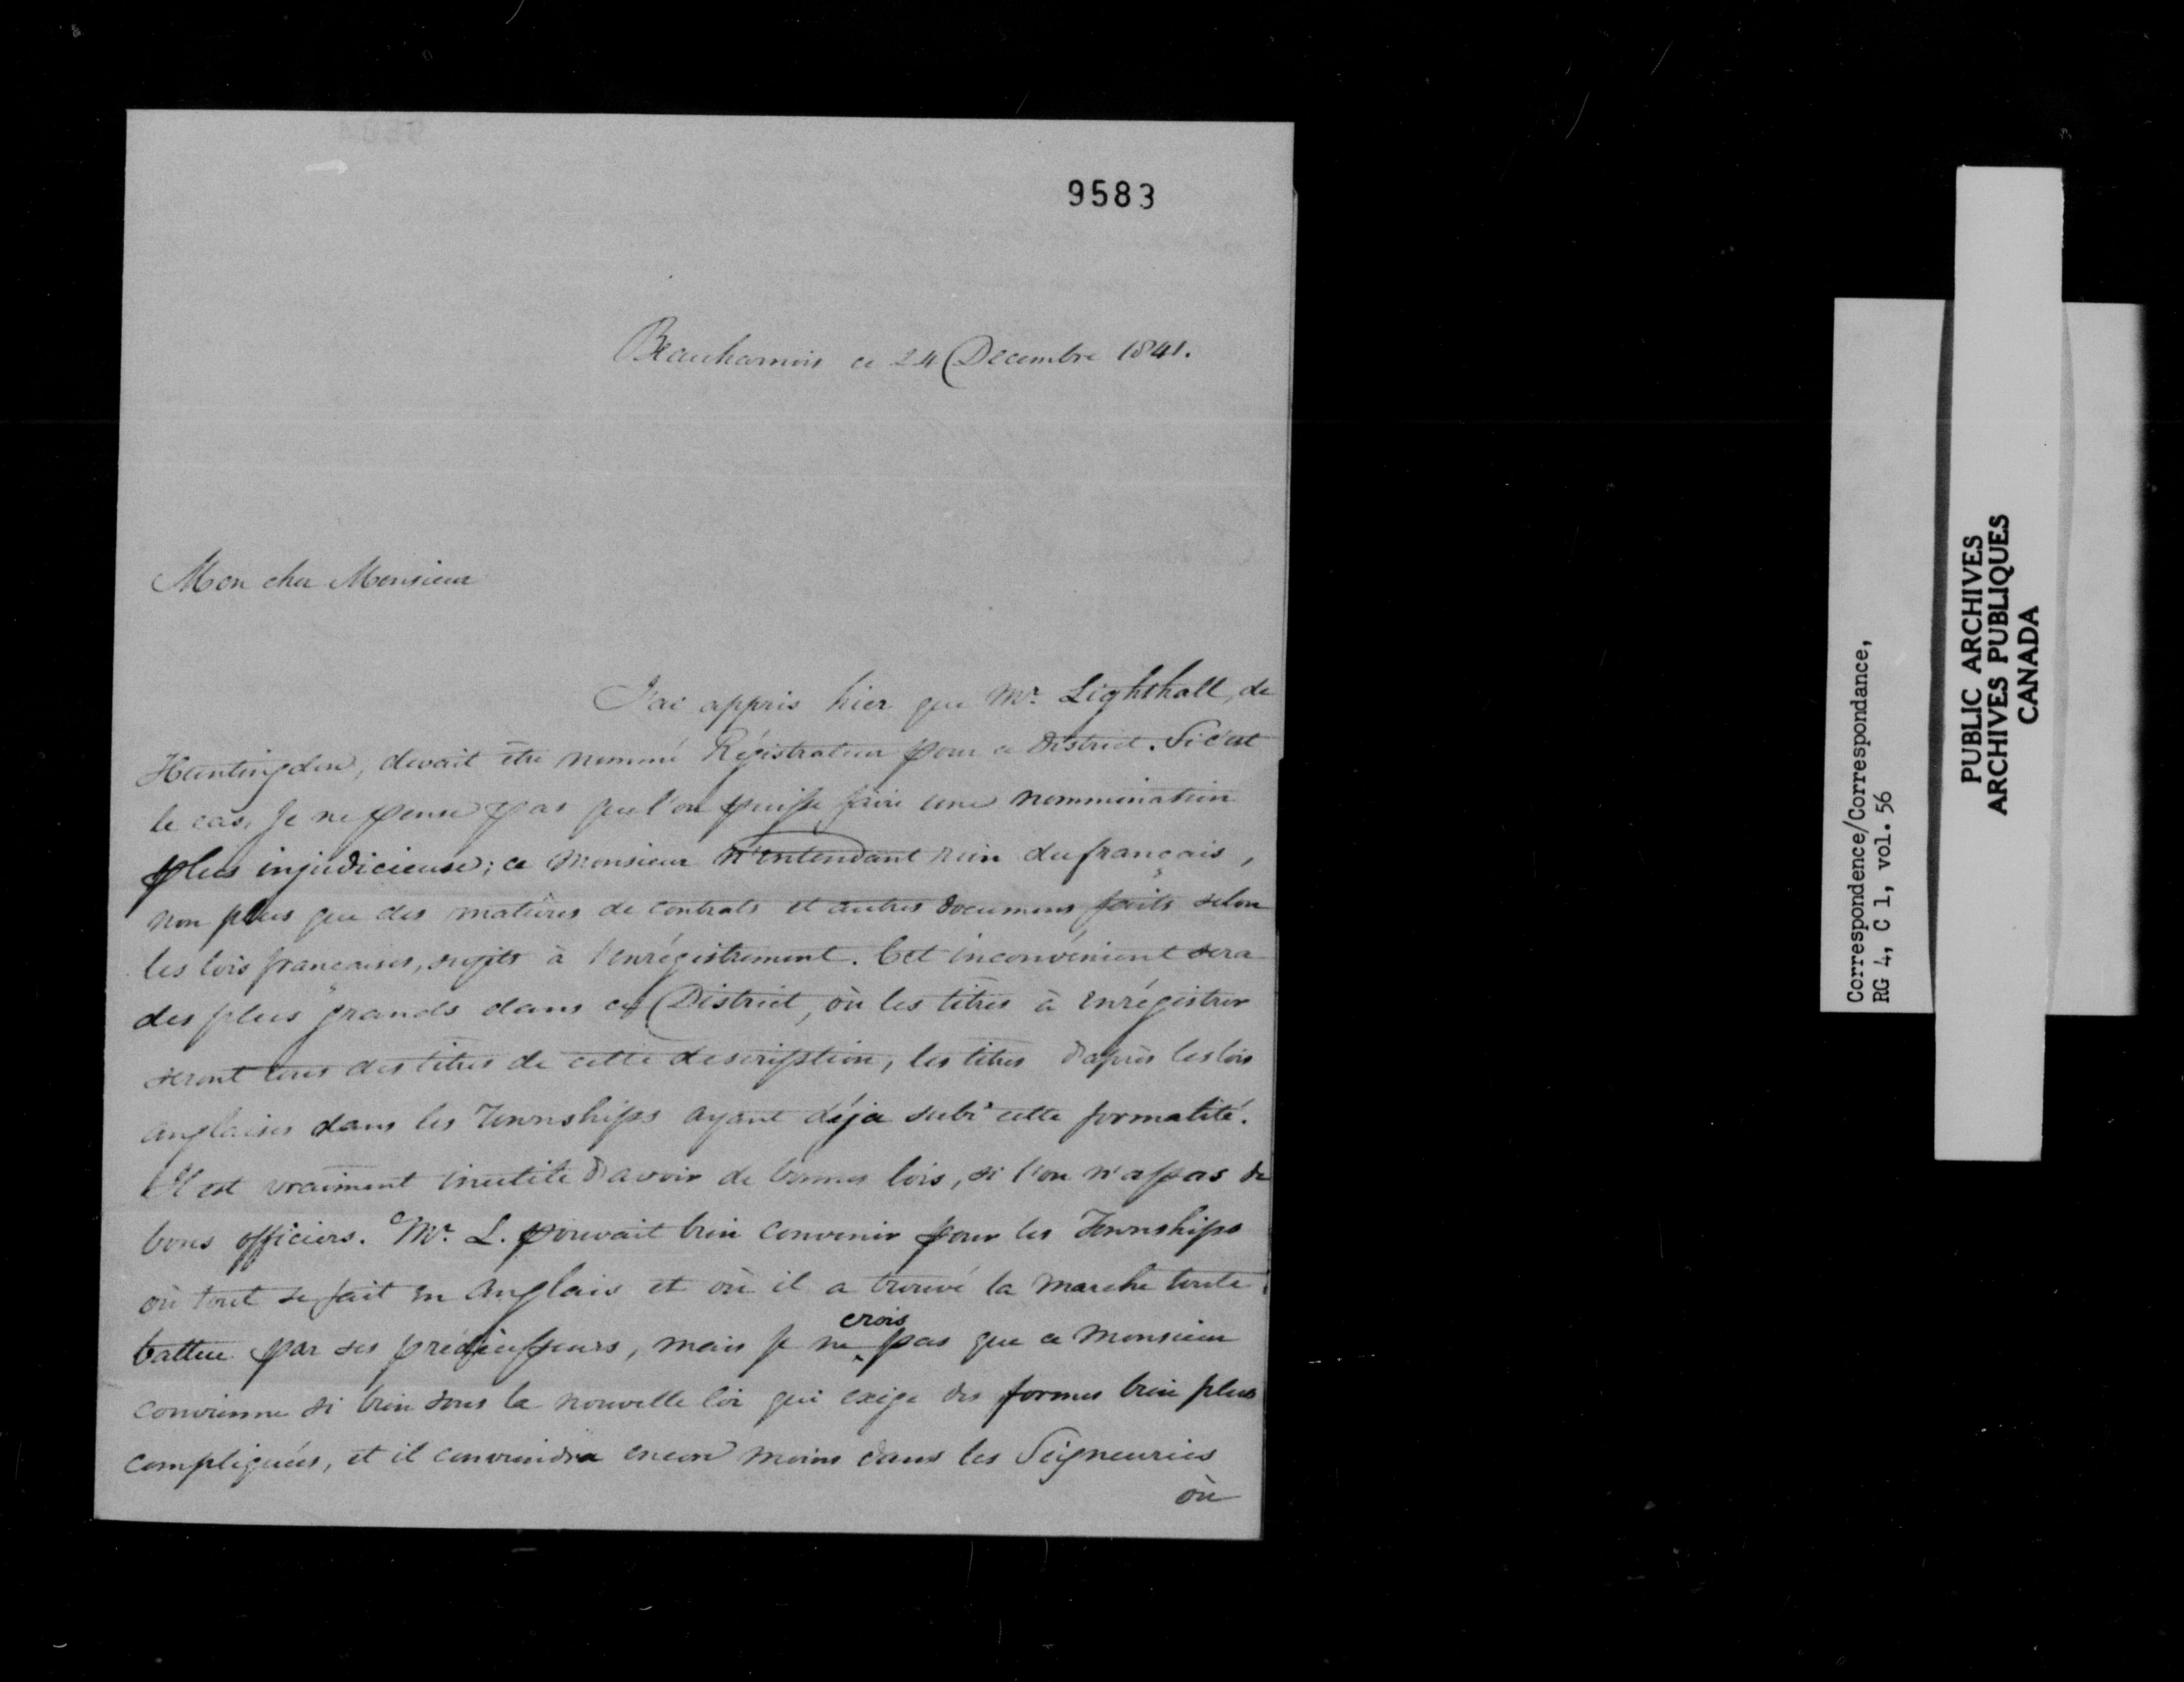 9583
Beauharnois ce 24 Decembre 1841.
Mon cher Monsieur
J'ai appris hier que Mr. Lighthall, de
Huntingdon, devait être nommé Régistrateur pour ce District. Si c'est
le cas, je ne pense pas que l'on puisse faire une nommination
plus injudicieuse; ce Monsieur n'entendant rien du français,
non plus que des matières de contrats et autres documens faits selon
les lois françaises, sujets à l'enrégistrement. Cet inconvénient sera
des plus grands dans ce District, où les titres à enrégistrer
seront tous des titres de cette description, les titres d'après les lois
anglaises dans les Townships ayant déja subi cette formalité.
Il est vraiment inutile d'avoir de bonnes lois, si l'on n'a pas de
bons officiers. Mr. L. pouvait bien convenir pour les Townships
où tout se fait en anglais et où il a trouvé la marche toute
battue par ses prédécesseurs, mais je ne crois pas que ce Monsieur
convienne si bien sous la nouvelle loi qui exige des formes bien plus
compliquées, et il conviendra encore moins dans les Seigneuries
où
Correspondence/Correspondance,
RG 4, C 1, vol. 56
PUBLIC ARCHIVES
ARCHIVES PUBLIQUES
CANADA